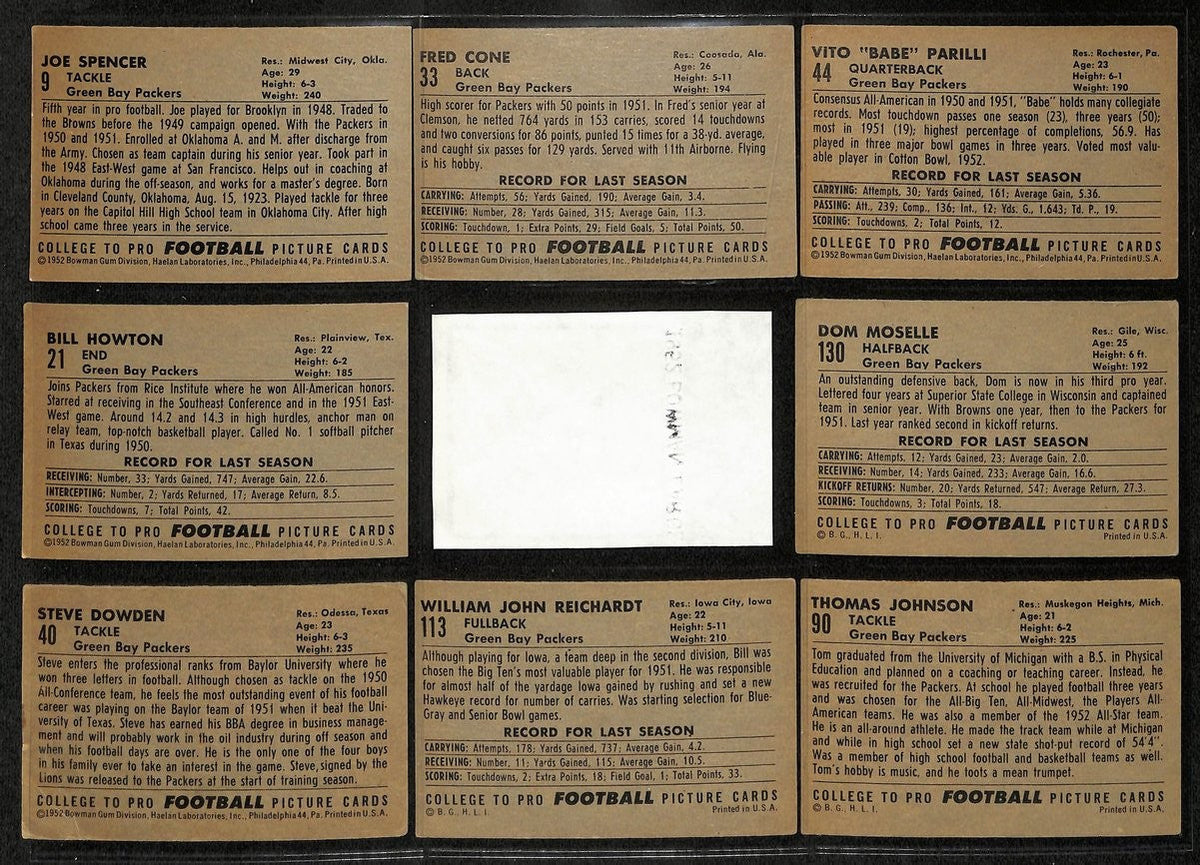 JOE SPENCER
9 TACKLE
Green Bay Packers
Res.: Midwest City, Okla.
Age: 29
Height: 6-3
Weight: 240
Fifth year in pro football. Joe played for Brooklyn in 1948. Traded to
the Browns before the 1949 campaign opened. With the Packers in
1950 and 1951. Enrolled at Oklahoma A. and M. after discharge from
the Army. Chosen as team captain during his senior year. Took part in
the 1948 East-West game at San Francisco. Helps out in coaching at
Oklahoma during the off-season, and works for a master's degree. Born
in Cleveland County, Oklahoma, Aug. 15, 1923. Played tackle for three
years on the Capitol Hill High School team in Oklahoma City. After high
school came three years in the service.
COLLEGE TO PRO FOOTBALL PICTURE CARDS
©1952 Bowman Gum Division, Haelan Laboratories, Inc., Philadelphia 44, Pa. Printed in U.S.A.
FRED CONE
33 BACK
Green Bay Packers
Res.: Coosada, Ala.
Age: 26
Height: 5-11
Weight: 194
High scorer for Packers with 50 points in 1951. In Fred's senior year at
Clemson, he netted 764 yards in 153 carries, scored 14 touchdowns
and two conversions for 86 points, punted 15 times for a 38-yd. average,
and caught six passes for 129 yards. Served with 11th Airborne. Flying
is his hobby.
RECORD FOR LAST SEASON
CARRYING: Attempts, 56; Yards Gained, 190; Average Gain, 3.4.
RECEIVING: Number, 28; Yards Gained, 315; Average Gain, 11.3.
SCORING: Touchdown, 1; Extra Points, 29; Field Goals, 5; Total Points, 50.
COLLEGE TO PRO FOOTBALL PICTURE CARDS
©1952 Bowman Gum Division, Haelan Laboratories, Inc., Philadelphia 44, Pa. Printed in U.S.A.
VITO "BABE" PARILLI
44 QUARTERBACK
Green Bay Packers
Res.: Rochester, Pa.
Age: 23
Height: 6-1
Weight: 190
Consensus All-American in 1950 and 1951, "Babe" holds many collegiate
records. Most touchdown passes one season (23), three years (50);
most in 1951 (19); highest percentage of completions, 56.9. Has
played in three major bowl games in three years. Voted most valu-
able player in Cotton Bowl, 1952.
RECORD FOR LAST SEASON
CARRYING: Attempts, 30; Yards Gained, 161; Average Gain, 5.36.
PASSING: Att., 239; Comp., 136; Int., 12; Yds. G., 1,643; Td. P., 19.
SCORING: Touchdowns, 2; Total Points, 12.
COLLEGE TO PRO FOOTBALL PICTURE CARDS
©1952 Bowman Gum Division, Haelan Laboratories, Inc., Philadelphia 44, Pa. Printed in U.S.A.
BILL HOWTON
21 END
Green Bay Packers
Res.: Plainview, Tex.
Age: 22
Height: 6-2
Weight: 185
Joins Packers from Rice Institute where he won All-American honors.
Starred at receiving in the Southeast Conference and in the 1951 East-
West game. Around 14.2 and 14.3 in high hurdles, anchor man on
relay team, top-notch basketball player. Called No. 1 softball pitcher
in Texas during 1950.
RECORD FOR LAST SEASON
RECEIVING: Number, 33; Yards Gained, 747; Average Gain, 22.6.
INTERCEPTING: Number, 2; Yards Returned, 17; Average Return, 8.5.
SCORING: Touchdowns, 7; Total Points, 42.
COLLEGE TO PRO FOOTBALL PICTURE CARDS
©1952 Bowman Gum Division, Haelan Laboratories, Inc., Philadelphia 44, Pa. Printed in U.S.A.
DOM MOSELLE
130 HALFBACK
Green Bay Packers
Res.: Gile, Wisc.
Age: 25
Height: 6 ft.
Weight: 192
An outstanding defensive back, Dom is now in his third pro year.
Lettered four years at Superior State College in Wisconsin and captained
team in senior year. With Browns one year, then to the Packers for
1951. Last year ranked second in kickoff returns.
RECORD FOR LAST SEASON
CARRYING: Attempts, 12; Yards Gained, 23; Average Gain, 2.0.
RECEIVING: Number, 14; Yards Gained, 233; Average Gain, 16.6.
KICKOFF RETURNS: Number, 20; Yards Returned, 547; Average Return, 27.3.
SCORING: Touchdowns, 3; Total Points, 18.
COLLEGE TO PRO FOOTBALL PICTURE CARDS
© B. G., H. L. I. Printed in U.S.A.
STEVE DOWDEN
40 TACKLE
Green Bay Packers
Res.: Odessa, Texas
Age: 23
Height: 6-3
Weight: 235
Steve enters the professional ranks from Baylor University where he
won three letters in football. Although chosen as tackle on the 1950
All-Conference team, he feels the most outstanding event of his football
career was playing on the Baylor team of 1951 when it beat the Uni-
versity of Texas. Steve has earned his BBA degree in business manage-
ment and will probably work in the oil industry during off season and
when his football days are over. He is the only one of the four boys
in his family ever to take an interest in the game. Steve, signed by the
Lions was released to the Packers at the start of training season.
COLLEGE TO PRO FOOTBALL PICTURE CARDS
©1952 Bowman Gum Division, Haelan Laboratories, Inc., Philadelphia 44, Pa. Printed in U.S.A.
WILLIAM JOHN REICHARDT
113 FULLBACK
Green Bay Packers
Res.: Iowa City, Iowa
Age: 22
Height: 5-11
Weight: 210
Although playing for Iowa, a team deep in the second division, Bill was
chosen the Big Ten's most valuable player for 1951. He was responsible
for almost half of the yardage Iowa gained by rushing and set a new
Hawkeye record for number of carries. Was starting selection for Blue-
Gray and Senior Bowl games.
RECORD FOR LAST SEASON
CARRYING: Attempts, 178; Yards Gained, 737; Average Gain, 4.2.
RECEIVING: Number, 11; Yards Gained, 115; Average Gain, 10.5.
SCORING: Touchdowns, 2; Extra Points, 18; Field Goal, 1; Total Points, 33.
COLLEGE TO PRO FOOTBALL PICTURE CARDS
© B. G., H. L. I. Printed in U.S.A.
THOMAS JOHNSON
90 TACKLE
Green Bay Packers
Res.: Muskegon Heights, Mich.
Age: 21
Height: 6-2
Weight: 225
Tom graduated from the University of Michigan with a B.S. in Physical
Education and planned on a coaching or teaching career. Instead, he
was recruited for the Packers. At school he played football three years
and was chosen for the All-Big Ten, All-Midwest, the Players All-
American teams. He was also a member of the 1952 All-Star team.
He is an all-around athlete. He made the track team while at Michigan
and while in high school set a new state shot-put record of 54'4".
Was a member of high school football and basketball teams as well.
Tom's hobby is music, and he toots a mean trumpet.
COLLEGE TO PRO FOOTBALL PICTURE CARDS
© B. G., H. L. I. Printed in U.S.A.